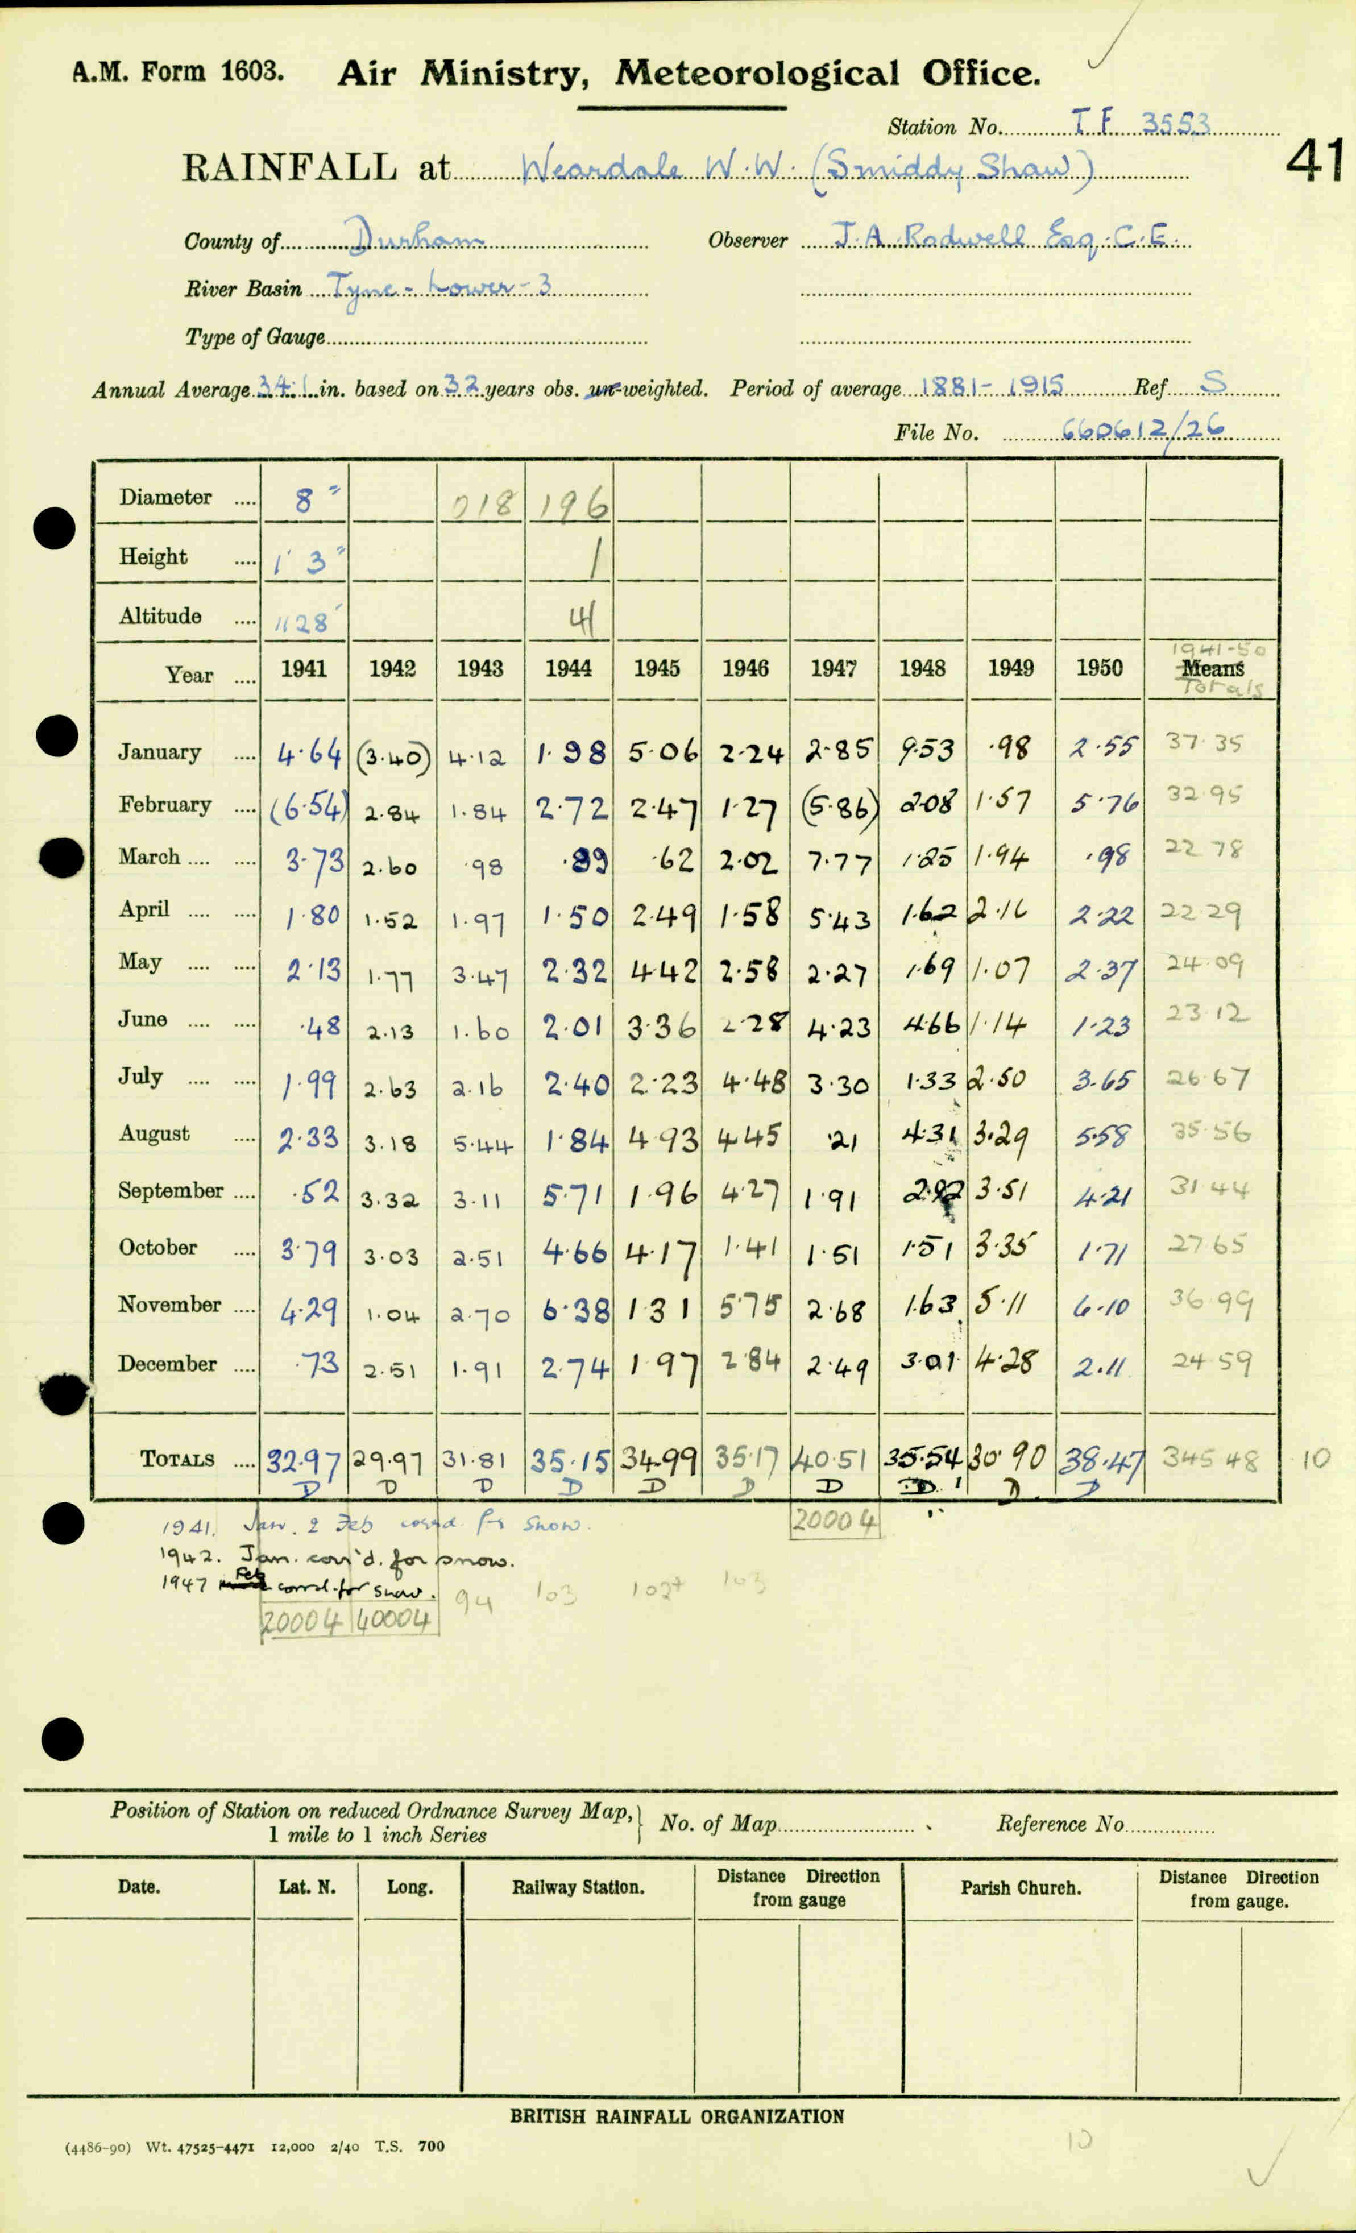 A.M. Form 1603. Air Ministry, Meteorological Office.
Station No. TF 3553
41
RAINFALL at Weardale W.W. (Smiddy Shaw)
County of Durham Observer J.A. Rodwell Esq. C.E.
River Basin Tyne - Lower - 3
Type of Gauge
Annual Average 34.1 in. based on 32 years obs. un-weighted. Period of average 1881-1915 Ref. S
File No. 660612/26
Diameter 8" 018 196
Height 1' 3" 1
Altitude 1128' 41
1941-50
Year 1941 1942 1943 1944 1945 1946 1947 1948 1949 1950 Means
Totals
January 4.64 (3.40) 4.12 1.98 5.06 2.24 2.85 9.53 .98 2.55 37.35
February (6.54) 2.84 1.84 2.72 2.47 1.27 (5.86) 2.08 1.57 5.76 32.95
March 3.73 2.60 .98 .89 .62 2.02 7.77 1.25 1.94 .98 22.78
April 1.80 1.52 1.97 1.50 2.49 1.58 5.43 1.62 2.16 2.22 22.29
May 2.13 1.77 3.47 2.32 4.42 2.58 2.27 1.69 1.07 2.37 24.09
June .48 2.13 1.60 2.01 3.36 2.28 4.23 4.66 1.14 1.23 23.12
July 1.99 2.63 2.16 2.40 2.23 4.48 3.30 1.33 2.50 3.65 26.67
August 2.33 3.18 5.44 1.84 4.93 4.45 .21 4.31 3.29 5.58 35.56
September .52 3.32 3.11 5.71 1.96 4.27 1.91 2.92 3.51 4.21 31.44
October 3.79 3.03 2.51 4.66 4.17 1.41 1.51 1.51 3.35 1.71 27.65
November 4.29 1.04 2.70 6.38 1.31 5.75 2.68 1.63 5.11 6.10 36.99
December .73 2.51 1.91 2.74 1.97 2.84 2.49 3.01 4.28 2.11 24.59
TOTALS 32.97 29.97 31.81 35.15 34.99 35.17 40.51 35.54 30.90 38.47 345.48 10
D D D D D D D D D D
1941. Jan. & Feb corrd. for snow. 20004
1942. Jan. corr'd. for snow.
1947 Feb corrd. for snow. 94 103 103
20004 40004
Position of Station on reduced Ordnance Survey Map, No. of Map Reference No.
1 mile to 1 inch Series
Date. Lat. N. Long. Railway Station. Distance Direction from gauge Parish Church. Distance Direction from gauge.
BRITISH RAINFALL ORGANIZATION
(4486-90) Wt. 47525-4471 12,000 2/40 T.S. 700
10